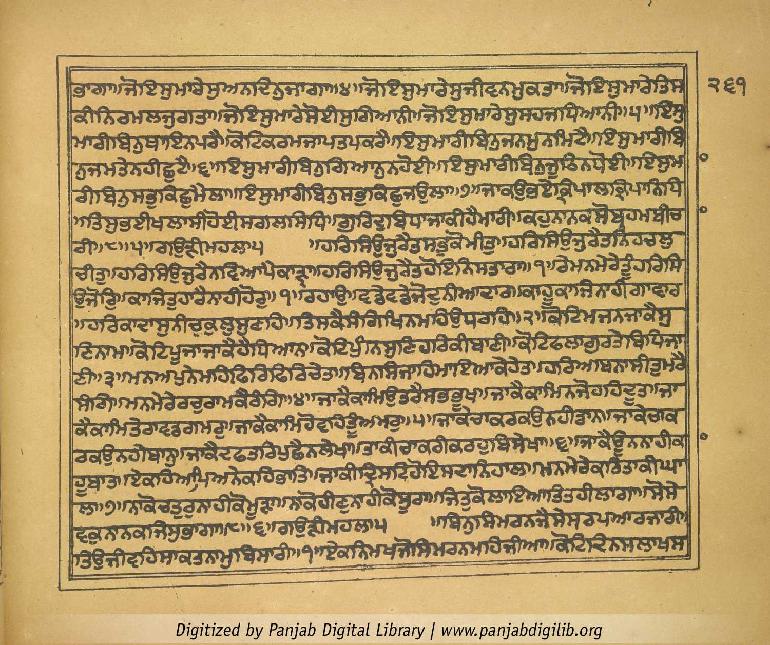 ਭਾਗਾ॥ਜੋਇਸੁਮਾਰੇਸੁਅਨਦਿਨੁਜਾਗਾ॥੪॥ਜੋਇਸੁਮਾਰੇਸੁਜੀਵਨਮੁਕਤਾ॥ਜੋਇਸੁਮਾਰੇਤਿਸ
ਕੀਨਿਰਮਲਜੁਗਤਾ॥ਜੋਇਸੁਮਾਰੇਸੋਈਸੁਗਿਆਨੀ॥ਜੋਇਸੁਮਾਰੇਸੁਸਹਜਧਿਆਨੀ॥੫॥ਇਸੁ
ਮਾਰੀਬਿਨੁਥਾਇਨਪਰੈ॥ਕੋਟਿਕਰਮਜਾਪਤਪਕਰੈ॥ਇਸੁਮਾਰੀਬਿਨੁਜਨਮੁਨਮਿਟੈ॥ਇਸੁਮਾਰੀਬਿ
ਨੁਜਮਤੇਨਹੀਛੁਟੈ॥੬॥ਇਸੁਮਾਰੀਬਿਨੁਗਿਆਨੁਨਹੋਈ॥ਇਸੁਮਾਰੀਬਿਨੁਜੂਠਿਨਧੋਈ॥ਇਸੁਮਾ
ਰੀਬਿਨੁਸਭੁਕਿਛੁਮੈਲਾ॥ਇਸੁਮਾਰੀਬਿਨੁਸਭੁਕਿਛੁਜਉਲਾ॥੭॥ਜਾਕਉਭਏਕ੍ਰਿਪਾਲਕ੍ਰਿਪਾਨਿਧਿ
॥ਤਿਸੁਭਈਖਲਾਸੀਹੋਈਸਗਲਸਿਧਿ॥ਗੁਰਿਦੁਬਿਧਾਜਾਕੀਹੈਮਾਰੀ॥ਕਹੁਨਾਨਕਸੋਬ੍ਰਹਮਬੀਚਾ
ਰੀ॥੮॥੫॥ਗਉੜੀਮਹਲਾ੫ ॥ਹਰਿਸਿਉਜੁਰੈਤਸਭੁਕੋਮੀਤੁ॥ਹਰਿਸਿਉਜੁਰੈਤਨਿਹਚਲੁ
ਚੀਤੁ॥ਹਰਿਸਿਉਜੁਰੈਨਵਿਆਪੈਕਾੜ੍ਹਾ॥ਹਰਿਸਿਉਜੁਰੈਤਹੋਇਨਿਸਤਾਰਾ॥੧॥ਰੇਮਨਮੇਰੇਤੂੰਹਰਿਸਿ
ਉਜੋਰੁ॥ਕਾਜਿਤੁਹਾਰੈਨਾਹੀਹੋਰੁ॥੧॥ਰਹਾਉ॥ਵਡੇਵਡੇਜੋਦੁਨੀਆਦਾਰ॥ਕਾਹੂਕਾਜਿਨਾਹੀਗਾਵਾਰ
॥ਹਰਿਕਾਦਾਸੁਨੀਚਕੁਲੁਸੁਣਹਿ॥ਤਿਸਕੈਸੰਗਿਖਿਨਮਹਿਉਧਰਹਿ॥੨॥ਕੋਟਿਮਜਨਜਾਕੈਸੁ
ਣਿਨਾਮ॥ਕੋਟਿਪੂਜਾਜਾਕੈਹੈਧਿਆਨ॥ਕੋਟਿਪੁੰਨਸੁਣਿਹਰਿਕੀਬਾਣੀ॥ਕੋਟਿਫਲਾਗੁਰਤੇਬਿਧਿਜਾ
ਣੀ॥੩॥ਮਨਅਪੁਨੇਮਹਿਫਿਰਿਫਿਰਿਚੇਤ॥ਬਿਨਸਿਜਾਹਿਮਾਇਆਕੇਹੇਤ॥ਹਰਿਅਬਿਨਾਸੀਤੁਮਰੈ
ਸੰਗਿ॥ਮਨਮੇਰੇਰਚੁਰਾਮਕੈਰੰਗਿ॥੪॥ਜਾਕੈਕਾਮਿਉਤਰੈਸਭਭੂਖ॥ਜਾਕੈਕਾਮਿਨਜੋਹਹਿਦੂਤ॥ਜਾ
ਕੈਕਾਮਿਤੇਰਾਵਡਗਮਰੁ॥ਜਾਕੈਕਾਮਿਹੋਵਹਿਤੂੰਅਮਰੁ॥੫॥ਜਾਕੇਚਾਕਰਕਉਨਹੀਡਾਨ॥ਜਾਕੇਚਾਕ
ਰਕਉਨਹੀਬਾਨ॥ਜਾਕੈਦਫਤਰਿਪੁਛੈਨਲੇਖਾ॥ਤਾਕੀਚਾਕਰੀਕਰਹੁਬਿਸੇਖਾ॥੬॥ਜਾਕੈਊਨਨਾਹੀਕਾ
ਹੂਬਾਤ॥ਏਕਹਿਆਪਿਅਨੇਕਹਿਭਾਤਿ॥ਜਾਕੀਦ੍ਰਿਸਟਿਹੋਇਸਦਾਨਿਹਾਲ॥ਮਨਮੇਰੇਕਰਿਤਾਕੀਘਾ
ਲ॥੭॥ਨਾਕੋਚਤੁਰੁਨਾਹੀਕੋਮੂੜਾ॥ਨਾਕੋਹੀਣੁਨਾਹੀਕੋਸੂਰਾ॥ਜਿਤੁਕੋਲਾਇਆਤਿਤਹੀਲਾਗਾ॥ਸੋਸੇ
ਵਕੁਨਾਨਕਜਿਸੁਭਾਗਾ॥੮॥੬॥ਗਉੜੀਮਹਲਾ੫ ॥ਬਿਨੁਸਿਮਰਨਜੈਸੇਸਰਪਆਰਜਾਰੀ॥
ਤਿਉਜੀਵਹਿਸਾਕਤਨਾਮੁਬਿਸਾਰੀ॥੧॥ਏਕਨਿਮਖਜੋਸਿਮਰਨਮਹਿਜੀਆ॥ਕੋਟਿਦਿਨਸਲਾਖਸ
੨੬੧
Digitized by Panjab Digital Library | www.panjabdigilib.org